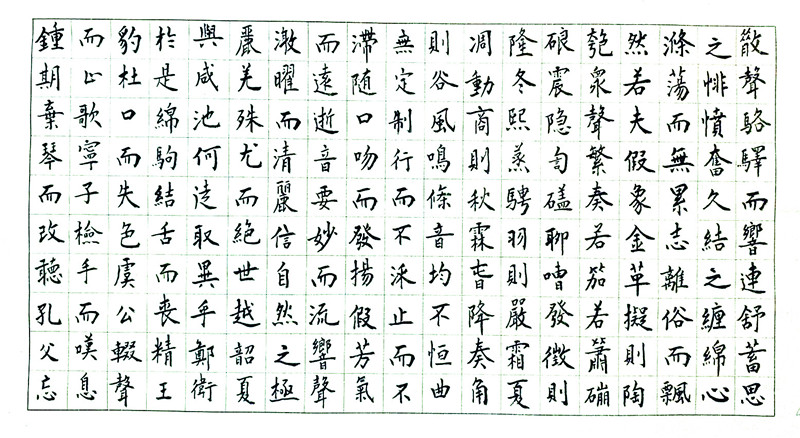 散聲駱驛而響連舒蓄思
之悱憤奮久結之纏綿心
滌蕩而無累志離俗而飄
然若夫假象金革擬則陶
匏衆聲繁奏若笳若簫磞
硠震隐訇磕聊嘈發徵則
隆冬熙蒸騁羽則嚴霜夏
凋動商則秋霖春降奏角
則谷風鳴條音均不恒曲
無定制行而不沠止而不
滯随口吻而發揚假芳氣
而遠逝音要妙而流響聲
激曜而清麗信自然之極
麗羌殊尤而絕世越韶夏
與咸池何徒取異乎鄭衛
於是綿駒結舌而喪精王
豹杜口而失色虞公輟聲
而止歌寧子檢手而嘆息
鍾期棄琴而改聽孔父忘